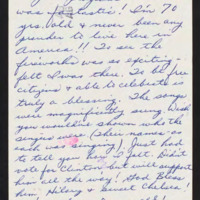 was fantastic! I'm 70
yrs. old & never been any
grander to live here in
America!! To see the
fireworks was so exciting -
felt I was there. To be free
citizens & able to celebrate is
truly a blessing. The songs
were magnificently sung. Wish
you would've shown who the
singers were (Their names - as
each was singing). Just had
to tell you how I felt. Didn't
vote for Clinton but will support
him all the way! God Bless
him, Hilary & sweet Chelsea!